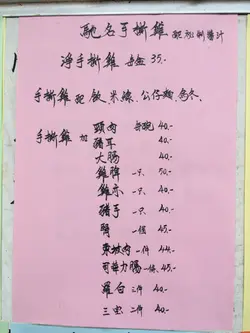 馳名手撕雞 配秘制醬汁
净手撕雞 每盅 35.-
手撕雞配飯、米線、公仔麵、烏冬、
手撕雞加 頸肉 每碗 40.-
豬耳 40.-
大腸 40.-
雞髀 一只 50.-
雞亦 一只 40.-
豬手 一只 40.-
一條 45.-
東坡肉 一件 44.-
可芽力腸 一條 45.-
羅白 三件 40.-
三虫 二件 40.-